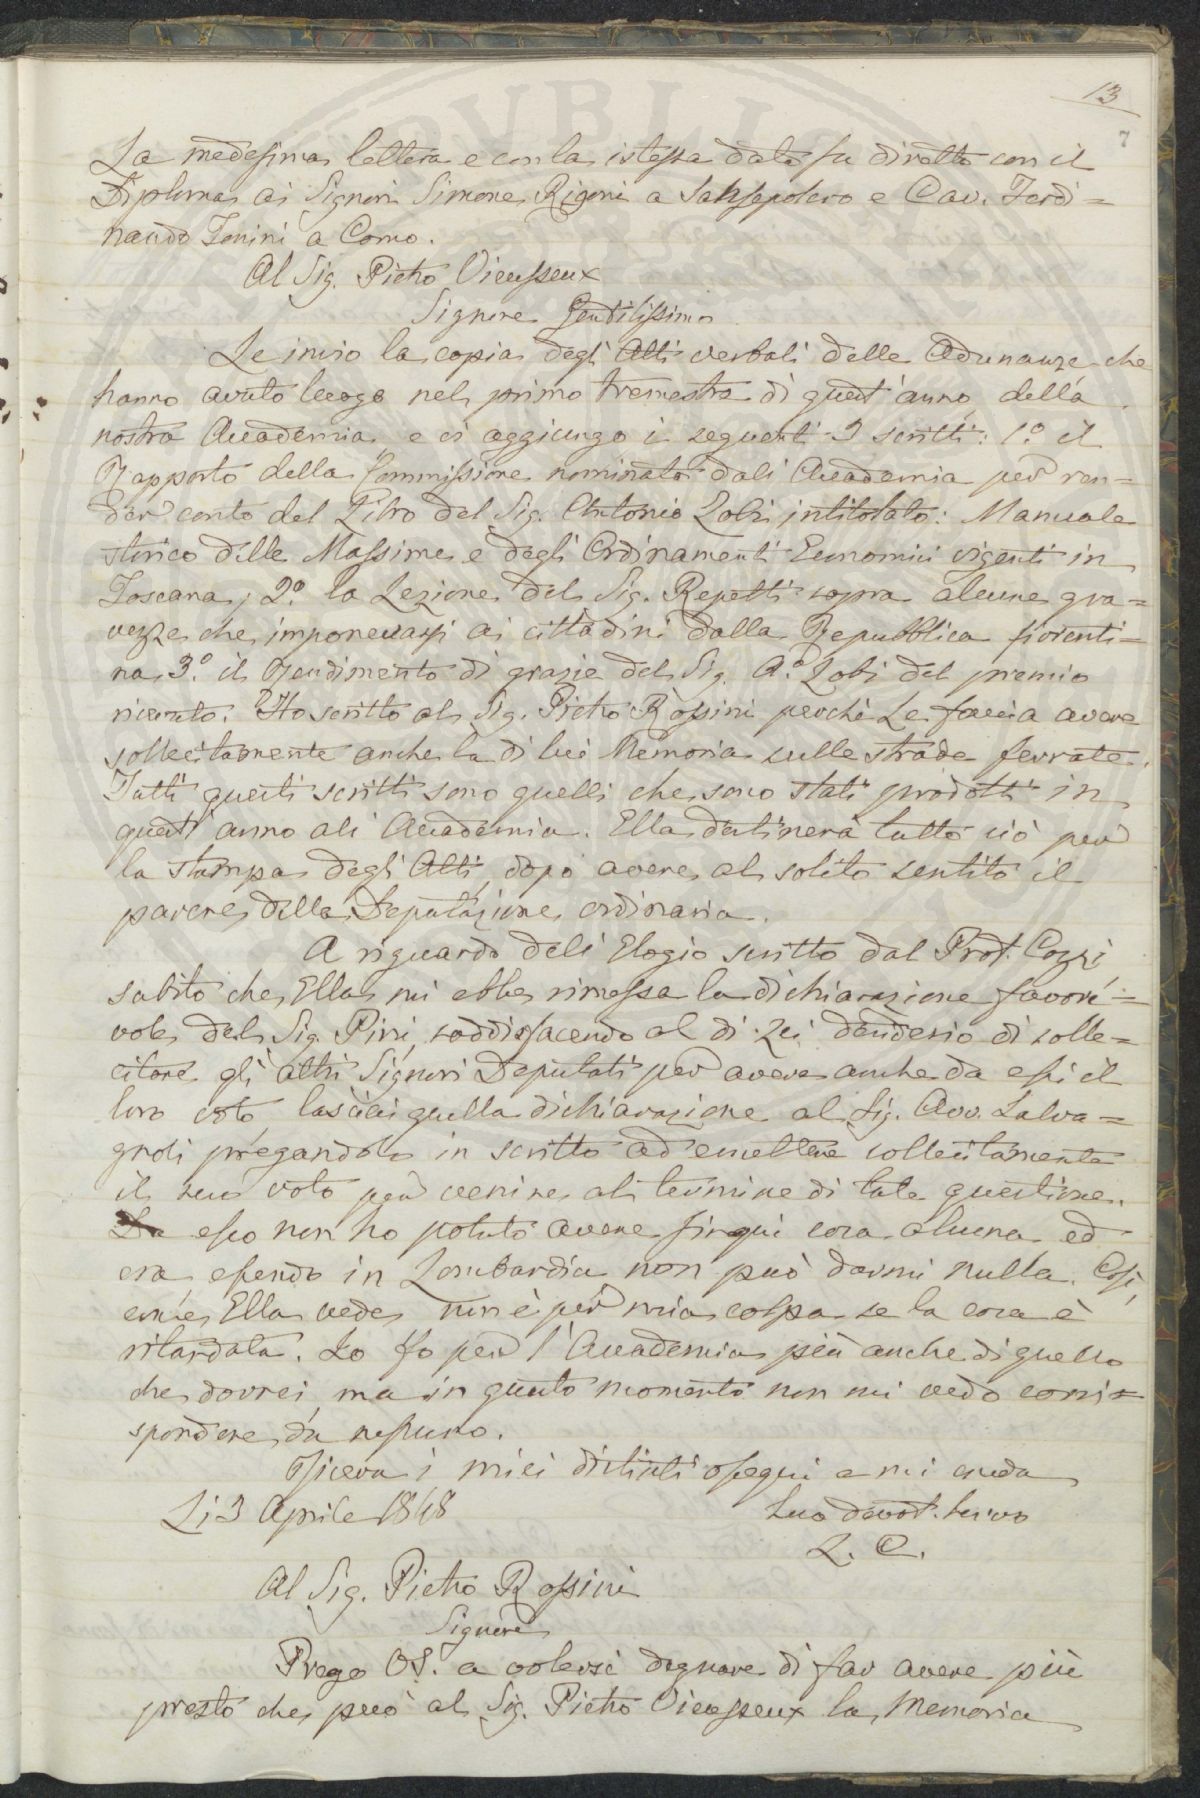 13
7
La medesima lettera e con la istessa data fu diretta con il
Diploma ai Signori Simone Rigoni a Sansepolcro e Cav. Ferdi=
nando Tonini a Como.
Al Sig. Pietro Vieusseux
Signore Gentilissimo
Le invio la copia degli Atti verbali delle Adunanze che
hanno avuto luogo nel primo tremestre di quest'anno della
nostra Accademia e ci aggiungo i seguenti 3 scritti: 1.o il
Rapporto della Commissione nominata dall'Accademia per ren=
der conto del Libro del Sig. Antonio Zobi intitolato: Manuale
storico delle Massime e degli Ordinamenti Economici vigenti in
Toscana, 2.o la Lezione del Sig. Repetti sopra alcune gra=
vezze che imponevansi ai cittadini dalla Repubblica fiorenti=
na 3.o il Rendimento di grazie del Sig. A.o Zobi del premio
ricevuto. Ho scritto al Sig. Pietro Rossini perchè Le faccia avere
sollecitamente anche la di lui Memoria sulle strade ferrate.
Tutti questi scritti sono quelli che sono stati prodotti in
quest'anno all'Accademia. Ella destinerà tutto ciò per
la stampa degli Atti, dopo avere al solito sentito il
parere della Deputazione ordinaria.
A riguardo dell'Elogio scritto dal Prof. Cozzi
subito che Ella mi ebbe rimessa la dichiarazione favore=
vole del Sig. Pini, soddisfacendo al di Lei desiderio di solle=
citare gli altri Signori Deputati per avere anche da essi il
loro voto, lasciai quella dichiarazione al Sig. Avv. Salva=
gnoli pregandolo in scritto ad emettere sollecitamente
il suo voto per venire al termine di tale questione.
Da esso non ho potuto avere finqui cosa alcuna ed
ora essendo in Lombardia non può darmi nulla. Così,
come Ella vede, non è per mia colpa se la cosa è
ritardata. Io fo per l'Accademia più anche di quello
che dovrei, ma in questo momento non mi vedo corri=
spondere da nessuno.
Riceva i miei distinti ossequi e mi creda
Li 3 Aprile 1848 Suo devot. servo
L. C.
Al Sig. Pietro Rossini
Signore
Prego VS. a volersi degnare di far avere più
presto che può al Sig. Pietro Vieusseux la Memoria